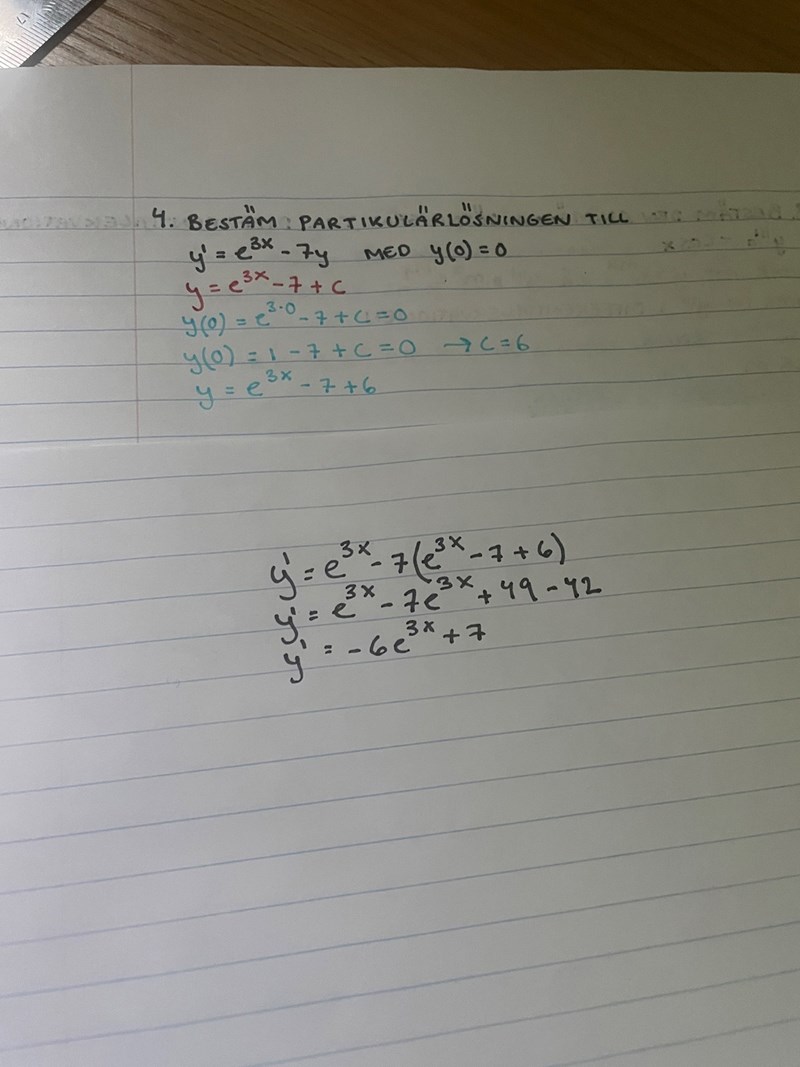 4. BESTÄM PARTIKULÄRLÖSNINGEN TILL
y' = e^3x - 7y MED y(0) = 0
y = e^3x - 7 + C
y(0) = e^3·0 - 7 + C = 0
y(0) = 1 - 7 + C = 0 → C = 6
y = e^3x - 7 + 6
y' = e^3x - 7(e^3x - 7 + 6)
y' = e^3x - 7e^3x + 49 - 42
y' = -6e^3x + 7